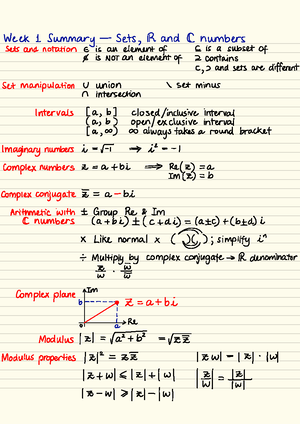 Week 1 Summary — Sets, ℝ and ℂ numbers
Sets and notation ∈ is an element of ⊆ is a subset of
∉ is NOT an element of ⊇ contains
⊂,⊃ and sets are different
Set manipulation ∪ union \ set minus
∩ intersection
Intervals [a, b] closed/inclusive interval
(a, b) open/exclusive interval
[a, ∞) ∞ always takes a round bracket
Imaginary numbers i = √-1 ⇒ i² = -1
Complex numbers z = a + bi ⇒ Re(z) = a
Im(z) = b
Complex conjugate z̅ = a - bi
Arithmetic with ℂ numbers ± Group Re & Im
(a + bi) ± (c + di) = (a±c) + (b±d) i
× Like normal × ( )( ); simplify iⁿ
÷ Multiply by complex conjugate → ℝ denominater
z/w · w̅/w̅
Complex plane Im
b z = a + bi
a Re
Modulus |z| = √a² + b² = √zz̅
Modulus properties |z|² = zz̅ |zw| = |z| · |w|
|z + w| ⩽ |z| + |w| |z/w| = |z|/|w|
|z - w| ⩾ |z| - |w|